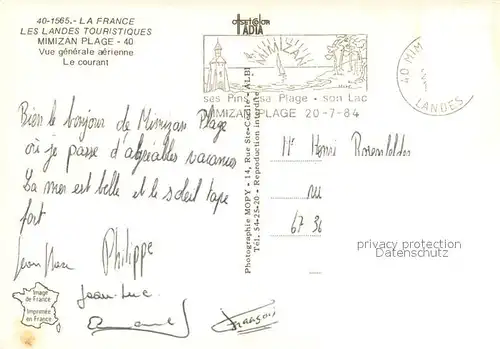 40-1565.- LA FRANCE
LES LANDES TOURISTIQUES
MIMIZAN PLAGE - 40
Vue générale aérienne
Le courant
MIMIZAN
ses Pins - sa Plage - son Lac
MIMIZAN PLAGE 20-7-84
40 MIM
LANDES
Bien le bonjour de Mimizan Plage
où je passe d'agréables vacances
La mer est belle et le soleil tape
fort
Jean Marc
Philippe
Jean-Luc
François
Image
de France
Imprimée
en France
Photographie MOPY - 14, Rue Ste-Cécile - ALBI
Tél. 54-25-20 - Reproduction interdite
Mr Henri
67
privacy protection
Datenschutz